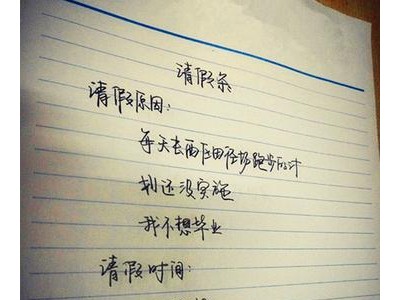 请假条
请假原因:
每天去西区田径场跑步的计
划还没实施
我不想毕业
请假时间: